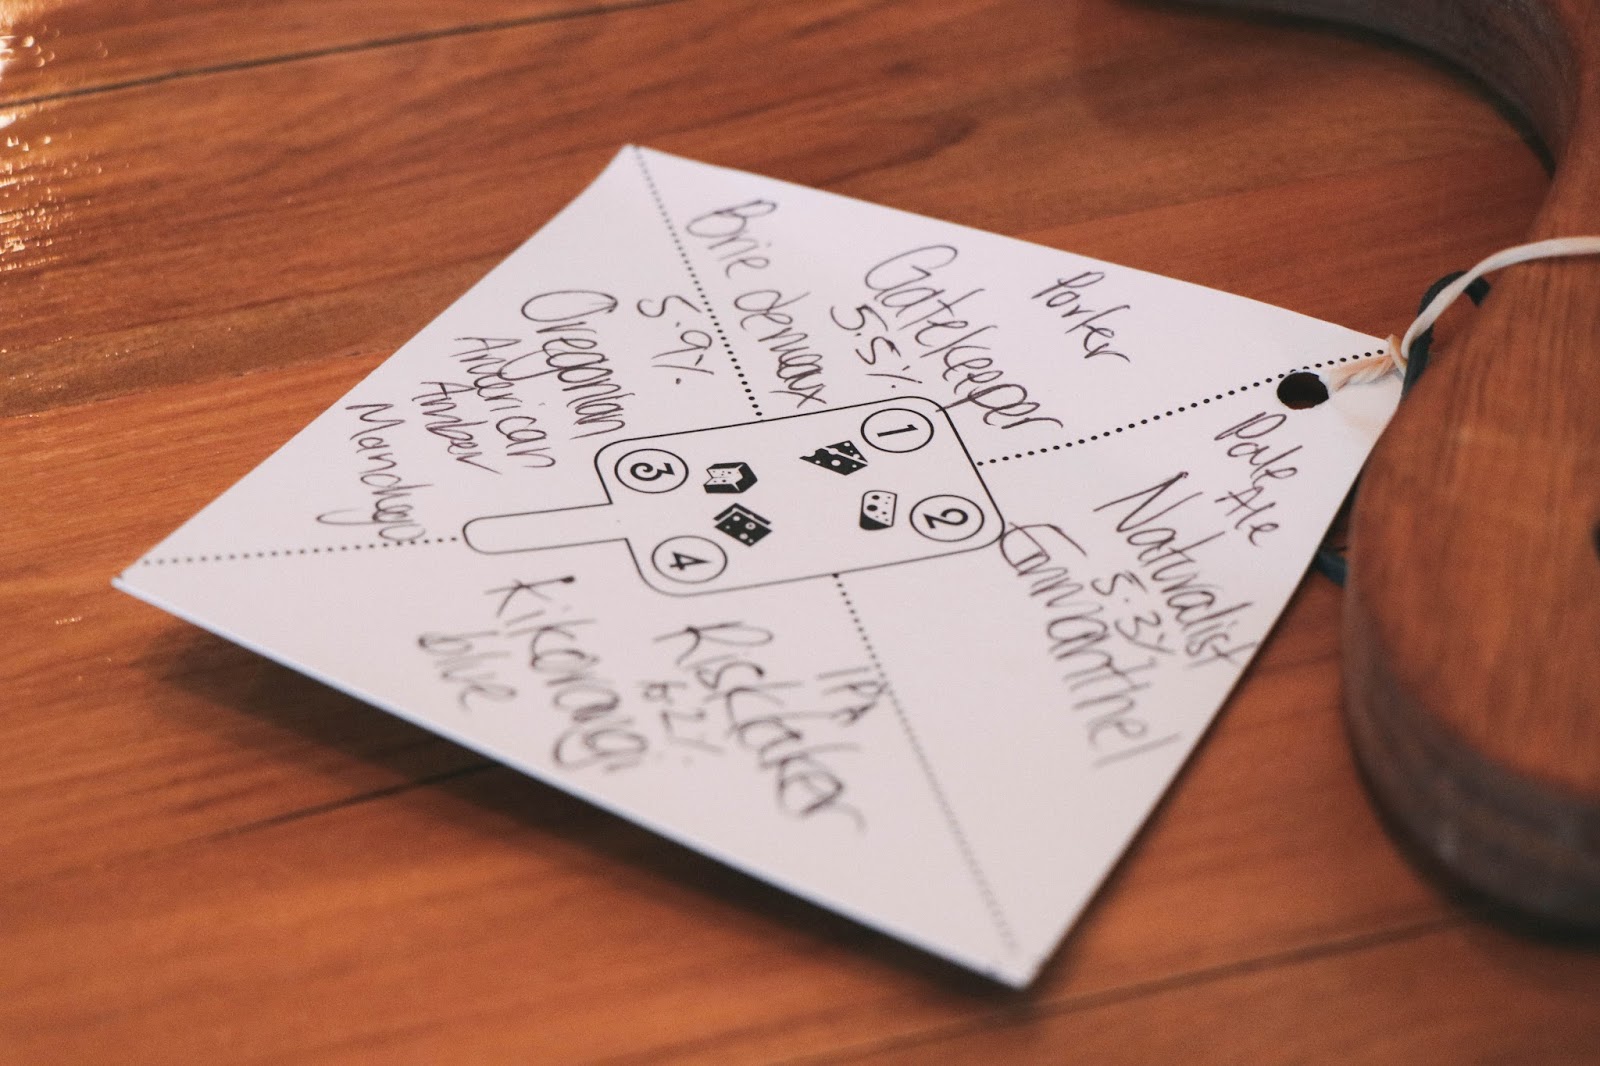 Porter
Gatekeeper
5.5%
Brie demeaux
1
Pale Ale
Naturalist
5.3%
Emmanthel
2
5.9%
Oregonian
American
Amber
Manchego
3
IPA
Risktaker
6.2%
Kikorangi
blue
4